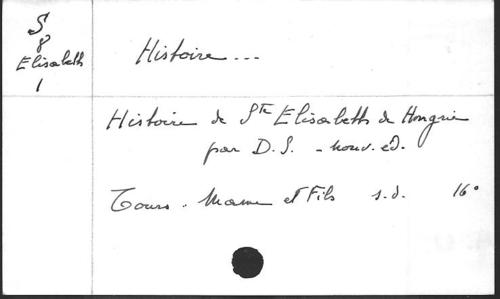 S
8
Elisabeth
1
Histoire...
Histoire de Ste Elisabeth de Hongrie
par D. S. - nouv. ed.
Tours. Mame et Fils s.d. 16°